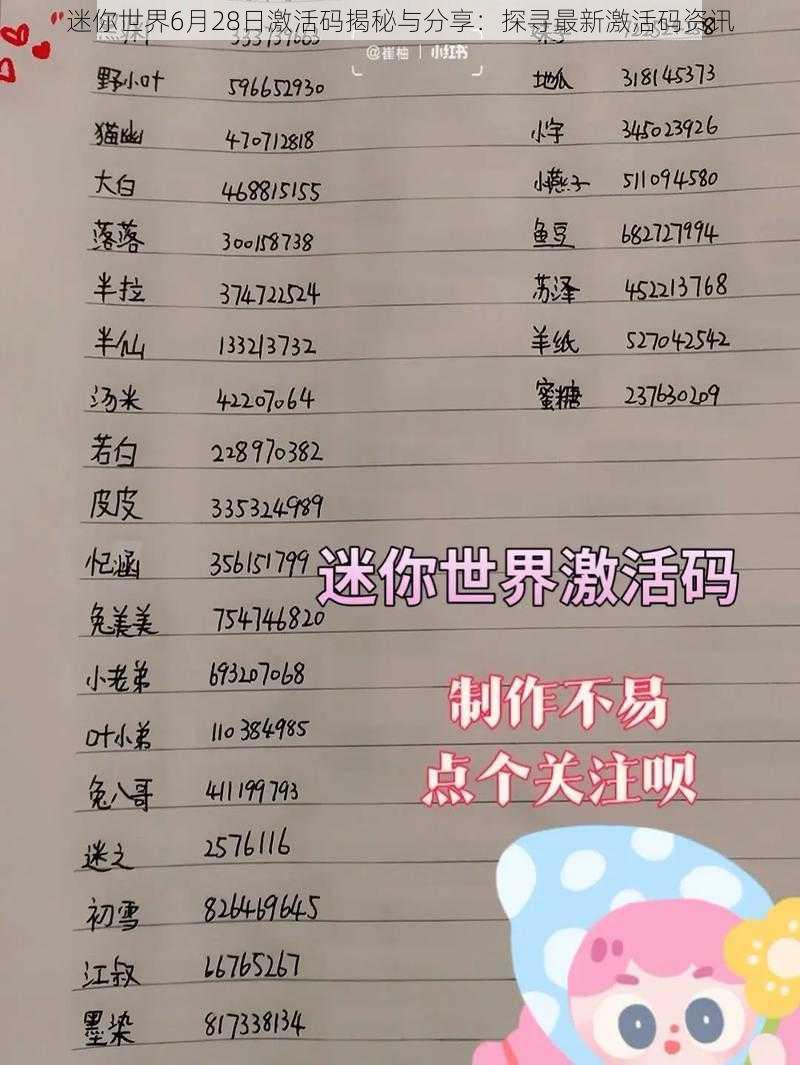 迷你世界6月28日激活码揭秘与分享：探寻最新激活码资讯
@崔柚 | 小红书
野小叶 596652930
猫幽 470712818
大白 468815155
落落 300158738
半拉 374722524
半仙 133213732
汤米 42207064
若白 228970382
皮皮 335324989
忆涵 356151799
兔美美 754746820
小老弟 693207068
叶小弟 110384985
兔八哥 411199793
迷之 2576116
初雪 826469645
江叔 66765267
墨染 817338134
地瓜 318145373
小字 345023926
小燕子 511094580
鱼豆 682727994
苏泽 452213768
羊纸 527042542
蜜糖 237630209
迷你世界激活码
制作不易
点个关注呗